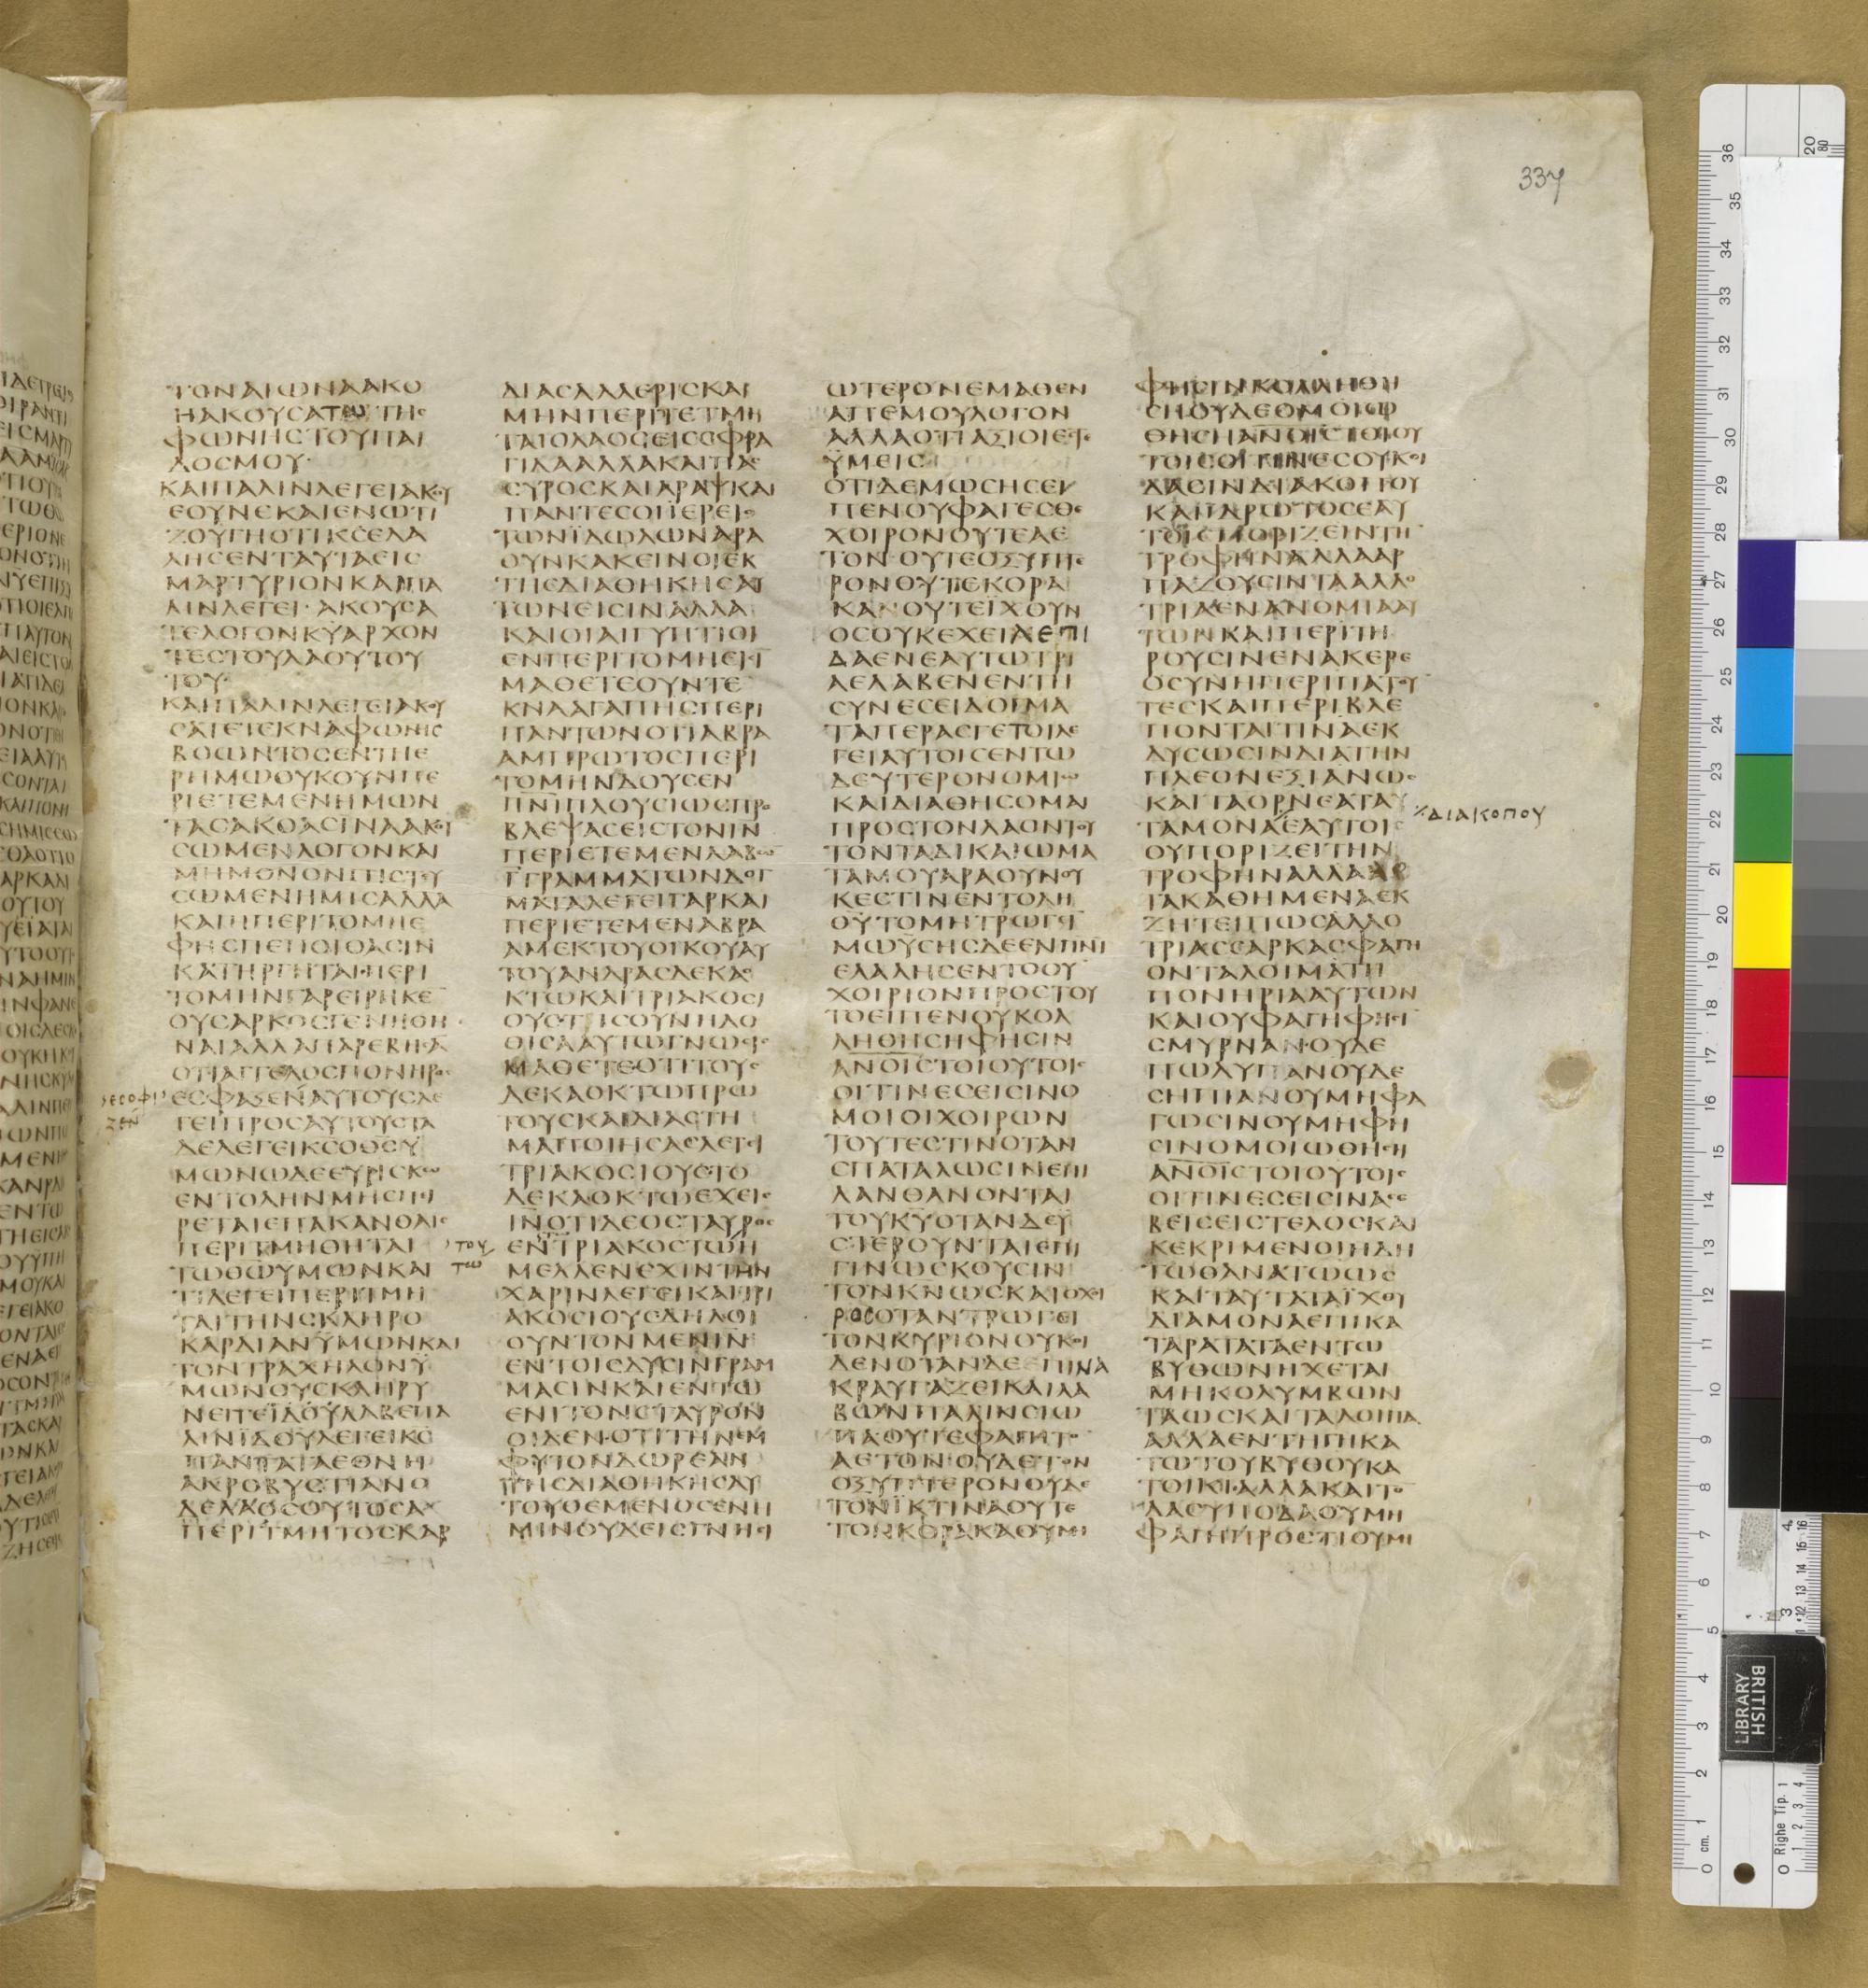 ΤΟΝΑΙΩΝΑΑΚΟ
ΗΑΚΟΥCΑΤΩΤΗC
ΦΩΝΗCΤΟΥΠΑΙ
ΔΟCΜΟΥ·
ΚΑΙΠΑΛΙΝΛΕΓΕΙΑΚΟΥ
ΕΟΥΝΕΚΑΙΕΝΩΤΙ
ΖΟΥΓΗΟΤΙΚ̅C̅ΕΛΑ
ΛΗCΕΝΤΑΥΤΑΕΙC
ΜΑΡΤΥΡΙΟΝΚΑΙΠΑ
ΛΙΝΛΕΓΕΙ·ΑΚΟΥCΑ
ΤΕΛΟΓΟΝΚ̅Υ̅ΑΡΧΟΝ
ΤΕCΤΟΥΛΑΟΥΤΟΥ
ΤΟΥ·
ΚΑΙΠΑΛΙΝΛΕΓΕΙΑΚΟΥ
CΑΤΕΤΕΚΝΑΦΩΝΗC
ΒΟΩΝΤΟCΕΝΤΗΕ
ΡΗΜΩΟΥΚΟΥΝΠΕ
ΡΙΕΤΕΜΕΝΗΜΩΝ
ΤΑCΑΚΟΑCΙΝΑΑΚΟΥ
CΩΜΕΝΛΟΓΟΝΚΑΙ
ΜΗΜΟΝΟΝΠΙCΤΕΥ
CΩΜΕΝΗΜΙCΑΛΛΑ
ΚΑΙΗΠΕΡΙΤΟΜΗΕ
ΦΗCΠΕΠΟΙΘΑCΙΝ
ΚΑΤΗΡΓΗΤΑΙ·ΠΕΡΙ
ΤΟΜΗΝΓΑΡΕΙΡΗΚΕ
ΟΥCΑΡΚΟCΓΕΝΗΘΗ
ΝΑΙΑΛΛΑΠΑΡΕΒΗCΑ
ΟΤΙΑΓΓΕΛΟCΠΟΝΗΡΟC
ΕCΦΑΞΕΝΑΥΤΟΥCΛΕ
ΓΕΙΠΡΟCΑΥΤΟΥCΤΑ
ΔΕΛΕΓΕΙΚ̅C̅ΟΘ̅C̅Υ
ΜΩΝΩΔΕΕΥΡΙCΚΩ
ΕΝΤΟΛΗΝΜΗCΠΙ
ΡΕΤΑΙΕΠΑΚΑΝΘΑΙC
ΠΕΡΙΤΜΗΘΗΤΑΙ
ΤΩΘΩΥΜΩΝΚΑΙ
ΤΙΛΕΓΕΙΠΕΡΙΤΜΗ
ΤΑΙΤΗΝCΚΛΗΡΟ
ΚΑΡΔΙΑΝΥΜΩΝΚΑΙ
ΤΟΝΤΡΑΧΗΛΟΝΥ
ΜΩΝΟΥCΚΛΗΡΥ
ΝΕΙΤΕΪΔΟΥΛΑΒΕΠΑ
ΛΙΝΪΔΟΥΛΕΓΕΙΚ̅C̅
ΠΑΝΤΑΤΑΕΘΝΗ
ΑΚΡΟΒΥCΤΙΑΝΟ
ΔΕΛΑΟCΟΥΤΟCΑ
ΠΕΡΙΤΜΗΤΟCΚΑΡ
ΤΟΥ
ΤΩ
ΔΙΑCΑΛΛΕΡΙCΚΑΙ
ΜΗΝΠΕΡΙΤΕΤΜΗ
ΤΑΙΟΛΑΟCΕΙCCΦΡΑ
ΓΙΔΑΑΛΛΑΚΑΙΠΑC
CΥΡΟCΚΑΙΑΡΑΨΚΑΙ
ΠΑΝΤΕCΟΙΪΕΡΕΙC
ΤΩΝΪΔΩΛΩΝΑΡΑ
ΟΥΝΚΑΚΕΙΝΟΙΕΚ
ΤΗCΔΙΑΘΗΚΗCΑΥ
ΤΩΝΕΙCΙΝΑΛΛΑ
ΚΑΙΟΙΑΙΓΥΠΤΙΟΙ
ΕΝΠΕΡΙΤΟΜΗΕΙCΙ
ΜΑΘΕΤΕΟΥΝΤΕ
ΚΝΑΑΓΑΠΗCΠΕΡΙ
ΠΑΝΤΩΝΟΤΙΑΒΡΑ
ΑΜΠΡΩΤΟCΠΕΡΙ
ΤΟΜΗΝΔΟΥCΕΝ
Π̅Ν̅Ι̅ΠΛΟΥCΙΩCΠΡΟ
ΒΛΕΨΑCΕΙCΤΟΝΙ̅Ν̅
ΠΕΡΙΕΤΕΜΕΝΛΑΒΩ
Γ̅ΓΡΑΜΜΑΤΩΝΔΟΓ
ΜΑΤΑΛΕΓΕΙΓΑΡΚΑΙ
ΠΕΡΙΕΤΕΜΕΝΑΒΡΑ
ΑΜΕΚΤΟΥΟΙΚΟΥΑΥ
ΤΟΥΑΝΔΡΑCΔΕΚΑΟ
ΚΤΩΚΑΙΤΡΙΑΚΟCΙ
ΟΥCΤΙCΟΥΝΗΔΟ
ΘΙCΑΑΥΤΩΓΝΩCΙC
ΜΑΘΕΤΕΟΤΙΤΟΥC
ΔΕΚΑΟΚΤΩΠΡΩ
ΤΟΥCΚΑΙΔΙΑCΤΗ
ΜΑΠΟΙΗCΑCΛΕΓΕΙ
ΤΡΙΑΚΟCΙΟΥCΤΟ
ΔΕΚΑΟΚΤΩΕΧΕΙC
Ι̅Ν̅ΟΤΙΔΕΟCΤΑΥΡΟC
ΕΝΤΡΙΑΚΟCΤΩΗ
ΜΕΛΛΕΝΕΧΙΝΤΗΝ
ΧΑΡΙΝΛΕΓΕΙΚΑΙΤΡΙ
ΑΚΟCΙΟΥCΔΗΛΟΙ
ΟΥΝΤΟΝΜΕΝΙ̅Ν̅
ΕΝΤΟΙCΔΥCΙΝΓΡΑΜ
ΜΑCΙΝΚΑΙΕΝΤΩ
ΕΝΙΤΟΝCΤΑΥΡΟΝ
ΟΙΔΕΝ·ΟΤΙΤΗΝΕΜ
ΦΥΤΟΝΔΩΡΕΑΝ
ΤΗCΔΙΑΘΗΚΗCΑΥ
ΤΟΥΘΕΜΕΝΟCΕΝΗ
ΜΙΝΟΥΔΕΙCΓΝΗCΙ
ΩΤΕΡΟΝΕΜΑΘΕΝ
ΑΠΕΜΟΥΛΟΓΟΝ
ΑΛΛΑΟΤΙΑΞΙΟΙΕCΤΕ
ΫΜΕΙC
ΟΤΙΔΕΜΩCΗCΕΙ
ΠΕΝΟΥΦΑΓΕCΘΕ
ΧΟΙΡΟΝΟΥΤΕΑΕ
ΤΟΝΟΥΤΕΟΞΥΠΤΕ
ΡΟΝΟΥΤΕΚΟΡΑ
ΚΑΝΟΥΤΕΪΧΘΥΝ
ΟCΟΥΚΕΧΕΙΛΕΠΙ
ΔΑΕΝΕΑΥΤΩΤΡΙ
ΑΕΛΑΒΕΝΕΝΤΗ
CΥΝΕCΕΙΔΟΓΜΑ
ΤΑΠΕΡΑCΓΕΤΟΙΛΕ
ΓΕΙΑΥΤΟΙCΕΝΤΩ
ΔΕΥΤΕΡΟΝΟΜΙΩ
ΚΑΙΔΙΑΘΗCΟΜΑΙ
ΠΡΟCΤΟΝΛΑΟΝΤΟΥ
ΤΟΝΤΑΔΙΚΑΙΩΜΑ
ΤΑΜΟΥΑΡΑΟΥΝΟΥ
ΚΕCΤΙΝΕΝΤΟΛΗ
Θ̅Υ̅ΤΟΜΗΤΡΩΓΕΙ
ΜΩΫCΗCΔΕΕΝΠ̅Ν̅Ι̅
ΕΛΑΛΗCΕΝΤΟΟΥ
ΧΟΙΡΙΟΝΠΡΟCΤΟΥ
ΤΟΕΙΠΕΝΟΥΚΟΛ
ΛΗΘΗCΗΦΗCΙΝ
Α̅Ν̅Ο̅Ι̅C̅ΤΟΙΟΥΤΟΙC
ΟΙΤΙΝΕCΕΙCΙΝΟ
ΜΟΙΟΙΧΟΙΡΩΝ
ΤΟΥΤΕCΤΙΝΟΤΑΝ
CΠΑΤΑΛΩCΙΝΕΠΙ
ΛΑΝΘΑΝΟΝΤΑΙ
ΤΟΥΚ̅Υ̅ΟΤΑΝΔΕΥ
CΤΕΡΟΥΝΤΑΙΕΠΙ
ΓΙΝΩCΚΟΥCΙΝ
ΤΟΝΚ̅Ν̅ΩCΚΑΙΟΧΟΙ
ΡΟCΟΤΑΝΤΡΩΓΕΙ
ΤΟΝΚΥΡΙΟΝΟΥΚΟΙ
ΔΕΝΟΤΑΝΔΕΠΙΝΑ
ΚΡΑΥΓΑΖΕΙΚΑΙΛΑ
ΒΩΝΠΑΛΙΝCΙΩ
ΠΑΟΥΤΕΦΑΓΗΤΟ
ΑΕΤΟΝΟΥΔΕΤΟΝ
ΟΞΥΠΤΕΡΟΝΟΥΔΕ
ΤΟΝΪΚΤΙΝΑΟΥΤΕ
ΤΟΝΚΟΡΑΚΑΟΥΜΗ
ΦΗCΙΝΚΟΛΛΗΘΗ
CΗΟΥΔΕΟΜΟΙΩ
ΘΗCΗΑ̅Ν̅Ο̅Ι̅C̅ΤΟΙΟΥ
ΤΟΙCΟΙΤΙΝΕCΟΥΚΟΙ
ΔΑCΙΝΔΙΑΚΟΠΟΥ
ΚΑΙΙΔΡΩΤΟCΕΑΥ
ΤΟΙCΠΟΡΙΖΕΙΝΤΗ
ΤΡΟΦΗΝΑΛΛΑΑΡ
ΠΑΖΟΥCΙΝΤΑΑΛΛΟ
ΤΡΙΑΕΝΑΝΟΜΙΑΑΥ
ΤΩΝΚΑΙΠΕΡΙΤΗ
ΡΟΥCΙΝΕΝΑΚΕΡΕ
ΟCΥΝΗΠΕΡΙΠΑΤΟΥ
ΤΕCΚΑΙΠΕΡΙΒΛΕ
ΠΟΝΤΑΙΤΙΝΑΕΚ
ΔΥCΩCΙΝΔΙΑΤΗΝ
ΠΛΕΟΝΕΞΙΑΝΩC
ΚΑΙΤΑΟΡΝΕΑΤΑΥ
ΤΑΜΟΝΑΕΑΥΤΟΙC
ΟΥΠΟΡΙΖΕΙΤΗΝ
ΤΡΟΦΗΝΑΛΛΑΑΡ
ΓΑΚΑΘΗΜΕΝΑΕΚ
ΖΗΤΕΙΠΩCΑΛΛΟ
ΤΡΙΑCCΑΡΚΑCΦΑΓΗ
ΟΝΤΑΛΟΙΜΑΤΗ
ΠΟΝΗΡΙΑΑΥΤΩΝ
ΚΑΙΟΥΦΑΓΗΦΗCΙ
CΜΥΡΝΑΝΟΥΔΕ
ΠΩΛΥΠΑΝΟΥΔΕ
CΗΠΙΑΝΟΥΜΗΦΑ
ΓΩCΙΝΟΥΜΗΦΗ
CΙΝΟΜΟΙΩΘΗCΗ
Α̅Ν̅Ο̅Ι̅C̅ΤΟΙΟΥΤΟΙC
ΟΙΤΙΝΕCΕΙCΙΝΑCΕ
ΒΕΙCΕΙCΤΕΛΟCΚΑΙ
ΚΕΚΡΙΜΕΝΟΙΗΔΗ
ΤΩΘΑΝΑΤΩΩC
ΚΑΙΤΑΥΤΑΤΑΪΧΘΥ
ΔΙΑΜΟΝΑΕΠΙΚΑ
ΤΑΡΑΤΑΤΑΕΝΤΩ
ΒΥΘΩΝΗΧΕΤΑΙ
ΜΗΚΟΛΥΜΒΩΝ
ΤΑΩCΚΑΙΤΑΛΟΙΠΑ
ΑΛΛΑΕΝΤΗΓΗΚΑ
ΤΩΤΟΥΒΥΘΟΥΚΑ
ΤΟΙΚΙ·ΑΛΛΑΚΑΙΤΟ
ΔΑCΥΠΟΔΑΟΥΜΗ
ΦΑΓΗΠΡΟCΤΙΟΥΜΗ
ΔΙΑΚΟΠΟΥ
337